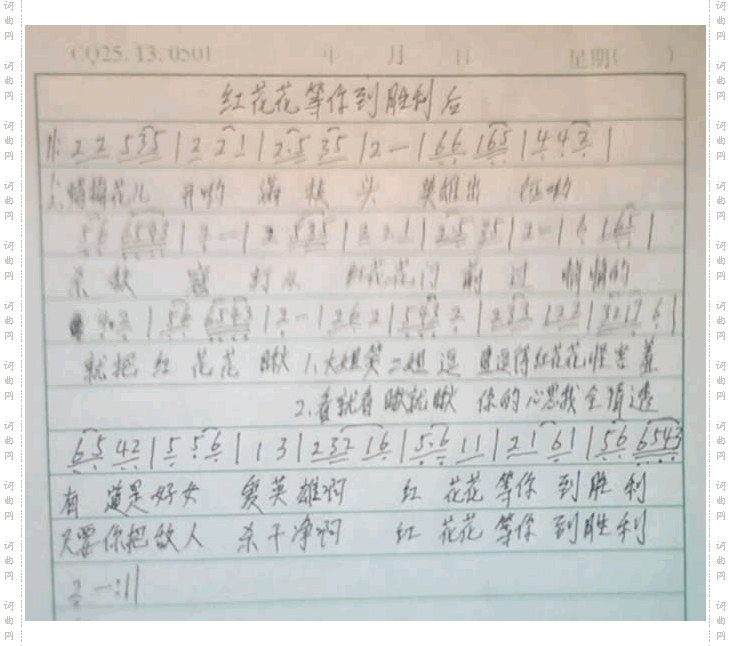 CQ25.13.0501 年 月 日 星期( )
红花花等你到胜利后
2 2 5 3 5 | 2 2 1 | 2·5 3 5 | 2 — | 6 6 1 6 5 | 4 4 2 |
花儿 开哟 满 枝 头 英雄出 征哟
5 6 6 5 4 3 | 2 — | 2 5 3 5 | 2 2 1 | 2·5 3 5 | 2 — | 6 1 6 5 |
杀 敌 寇 红花花门 前 过 悄悄的
4 2 | 5 6 6 5 4 3 | 2 — | 2 6 2 | 5 4 3 2 | 2 3 3 1 2 2 | 3 2 1 7 6 |
就把 红 花花 瞅 1.大姐笑二姐 逗 逗得红花花怪害羞
2.看就看 瞅就瞅 你的心思我全猜透
6 5 4 2 | 5 5 6 | 1 3 | 2 3 2 1 6 | 5·6 1 1 | 2 1 6 1 | 5 6 6 5 4 3
有 道是好女 爱英雄啊 红 花花等你 到胜 利
只要你把敌人 杀干净啊 红 花花等你 到胜利
2 — :||
词曲网